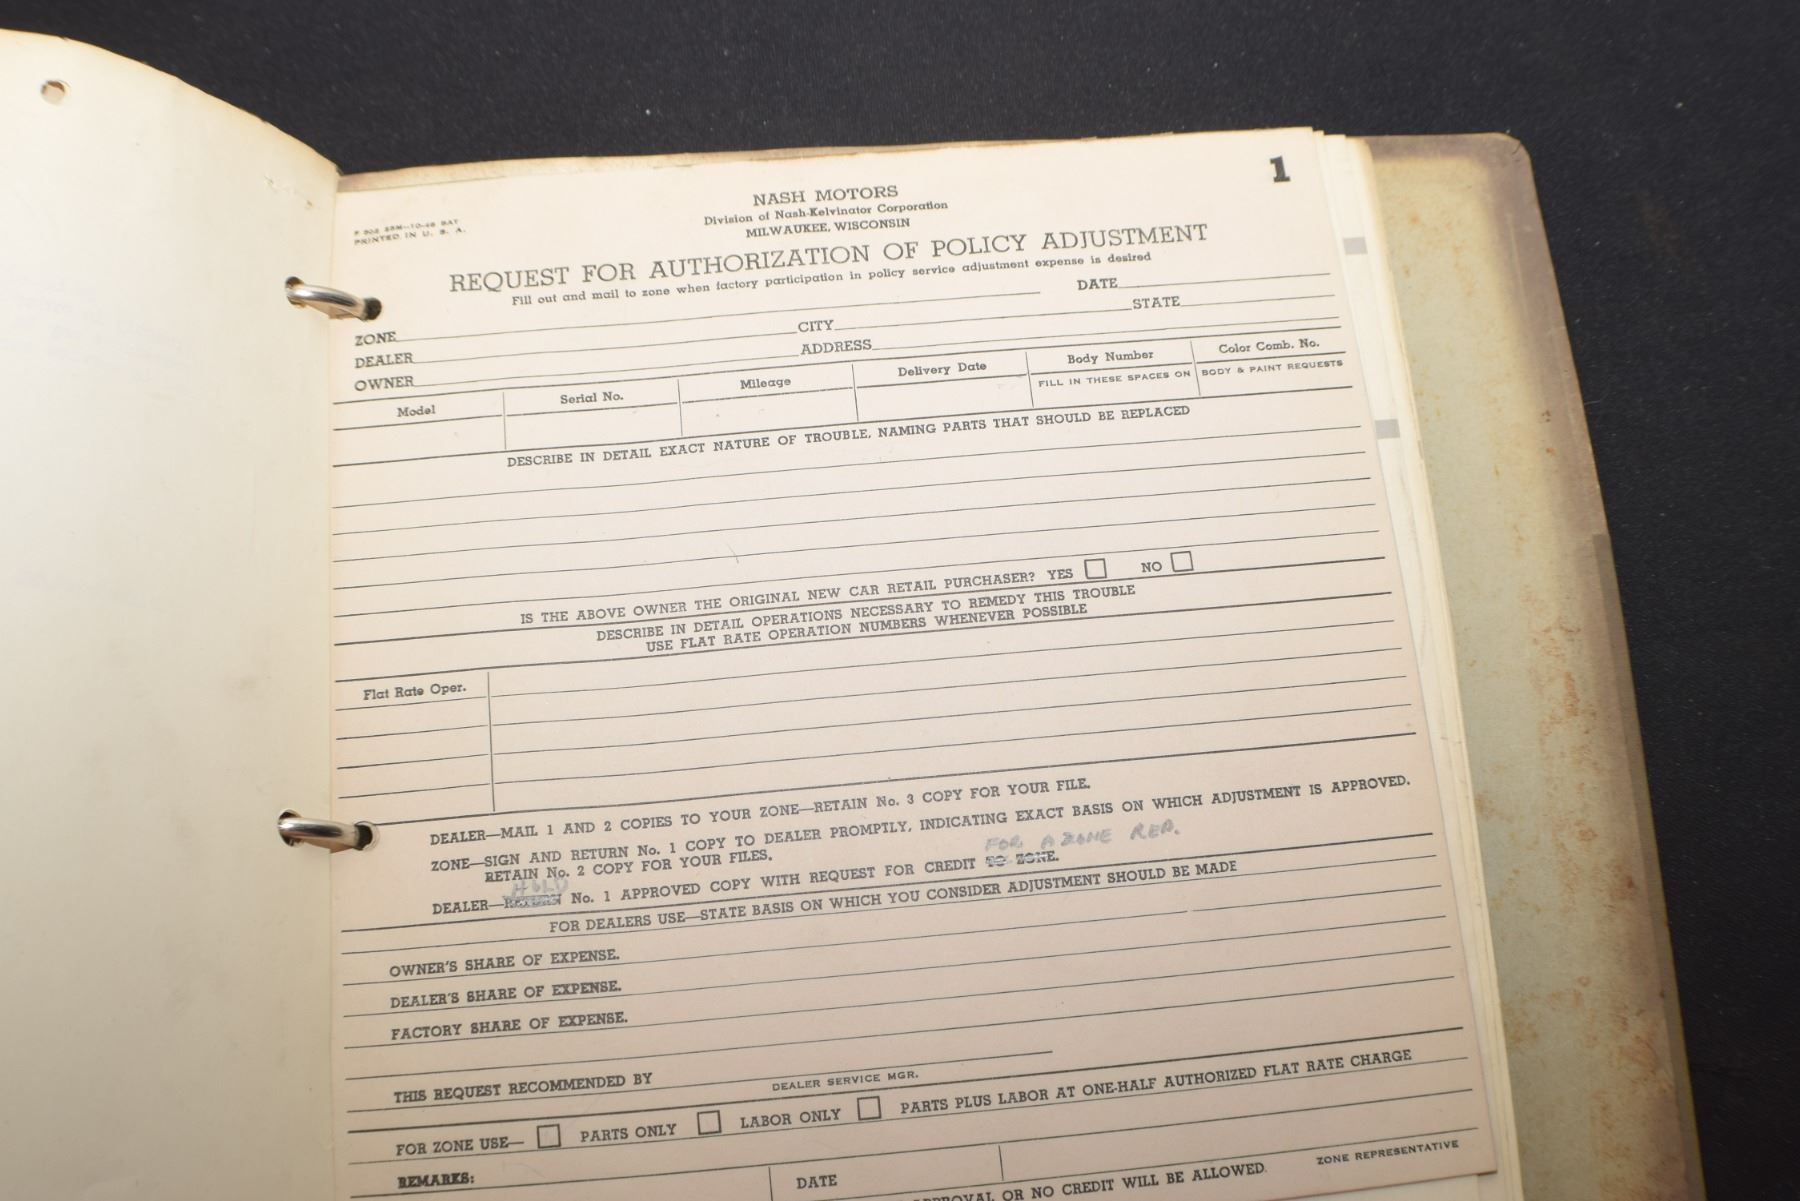 1
NASH MOTORS
Division of Nash-Kelvinator Corporation
MILWAUKEE, WISCONSIN
PRINTED IN U. S. A.
REQUEST FOR AUTHORIZATION OF POLICY ADJUSTMENT
Fill out and mail to zone when factory participation in policy service adjustment expense is desired
DATE
ZONE
CITY STATE
DEALER
ADDRESS
OWNER
Model Serial No. Mileage Delivery Date Body Number Color Comb. No.
FILL IN THESE SPACES ON BODY & PAINT REQUESTS
DESCRIBE IN DETAIL EXACT NATURE OF TROUBLE, NAMING PARTS THAT SHOULD BE REPLACED
IS THE ABOVE OWNER THE ORIGINAL NEW CAR RETAIL PURCHASER? YES NO
DESCRIBE IN DETAIL OPERATIONS NECESSARY TO REMEDY THIS TROUBLE
USE FLAT RATE OPERATION NUMBERS WHENEVER POSSIBLE
Flat Rate Oper.
DEALER—MAIL 1 AND 2 COPIES TO YOUR ZONE—RETAIN No. 3 COPY FOR YOUR FILE.
ZONE—SIGN AND RETURN No. 1 COPY TO DEALER PROMPTLY, INDICATING EXACT BASIS ON WHICH ADJUSTMENT IS APPROVED.
RETAIN No. 2 COPY FOR YOUR FILES.
FOR A ZONE REP.
HOLD
DEALER—RETURN No. 1 APPROVED COPY WITH REQUEST FOR CREDIT TO ZONE.
FOR DEALERS USE—STATE BASIS ON WHICH YOU CONSIDER ADJUSTMENT SHOULD BE MADE
OWNER'S SHARE OF EXPENSE.
DEALER'S SHARE OF EXPENSE.
FACTORY SHARE OF EXPENSE.
THIS REQUEST RECOMMENDED BY
DEALER SERVICE MGR.
FOR ZONE USE— PARTS ONLY LABOR ONLY PARTS PLUS LABOR AT ONE-HALF AUTHORIZED FLAT RATE CHARGE
REMARKS:
DATE
ZONE REPRESENTATIVE
OR NO CREDIT WILL BE ALLOWED.